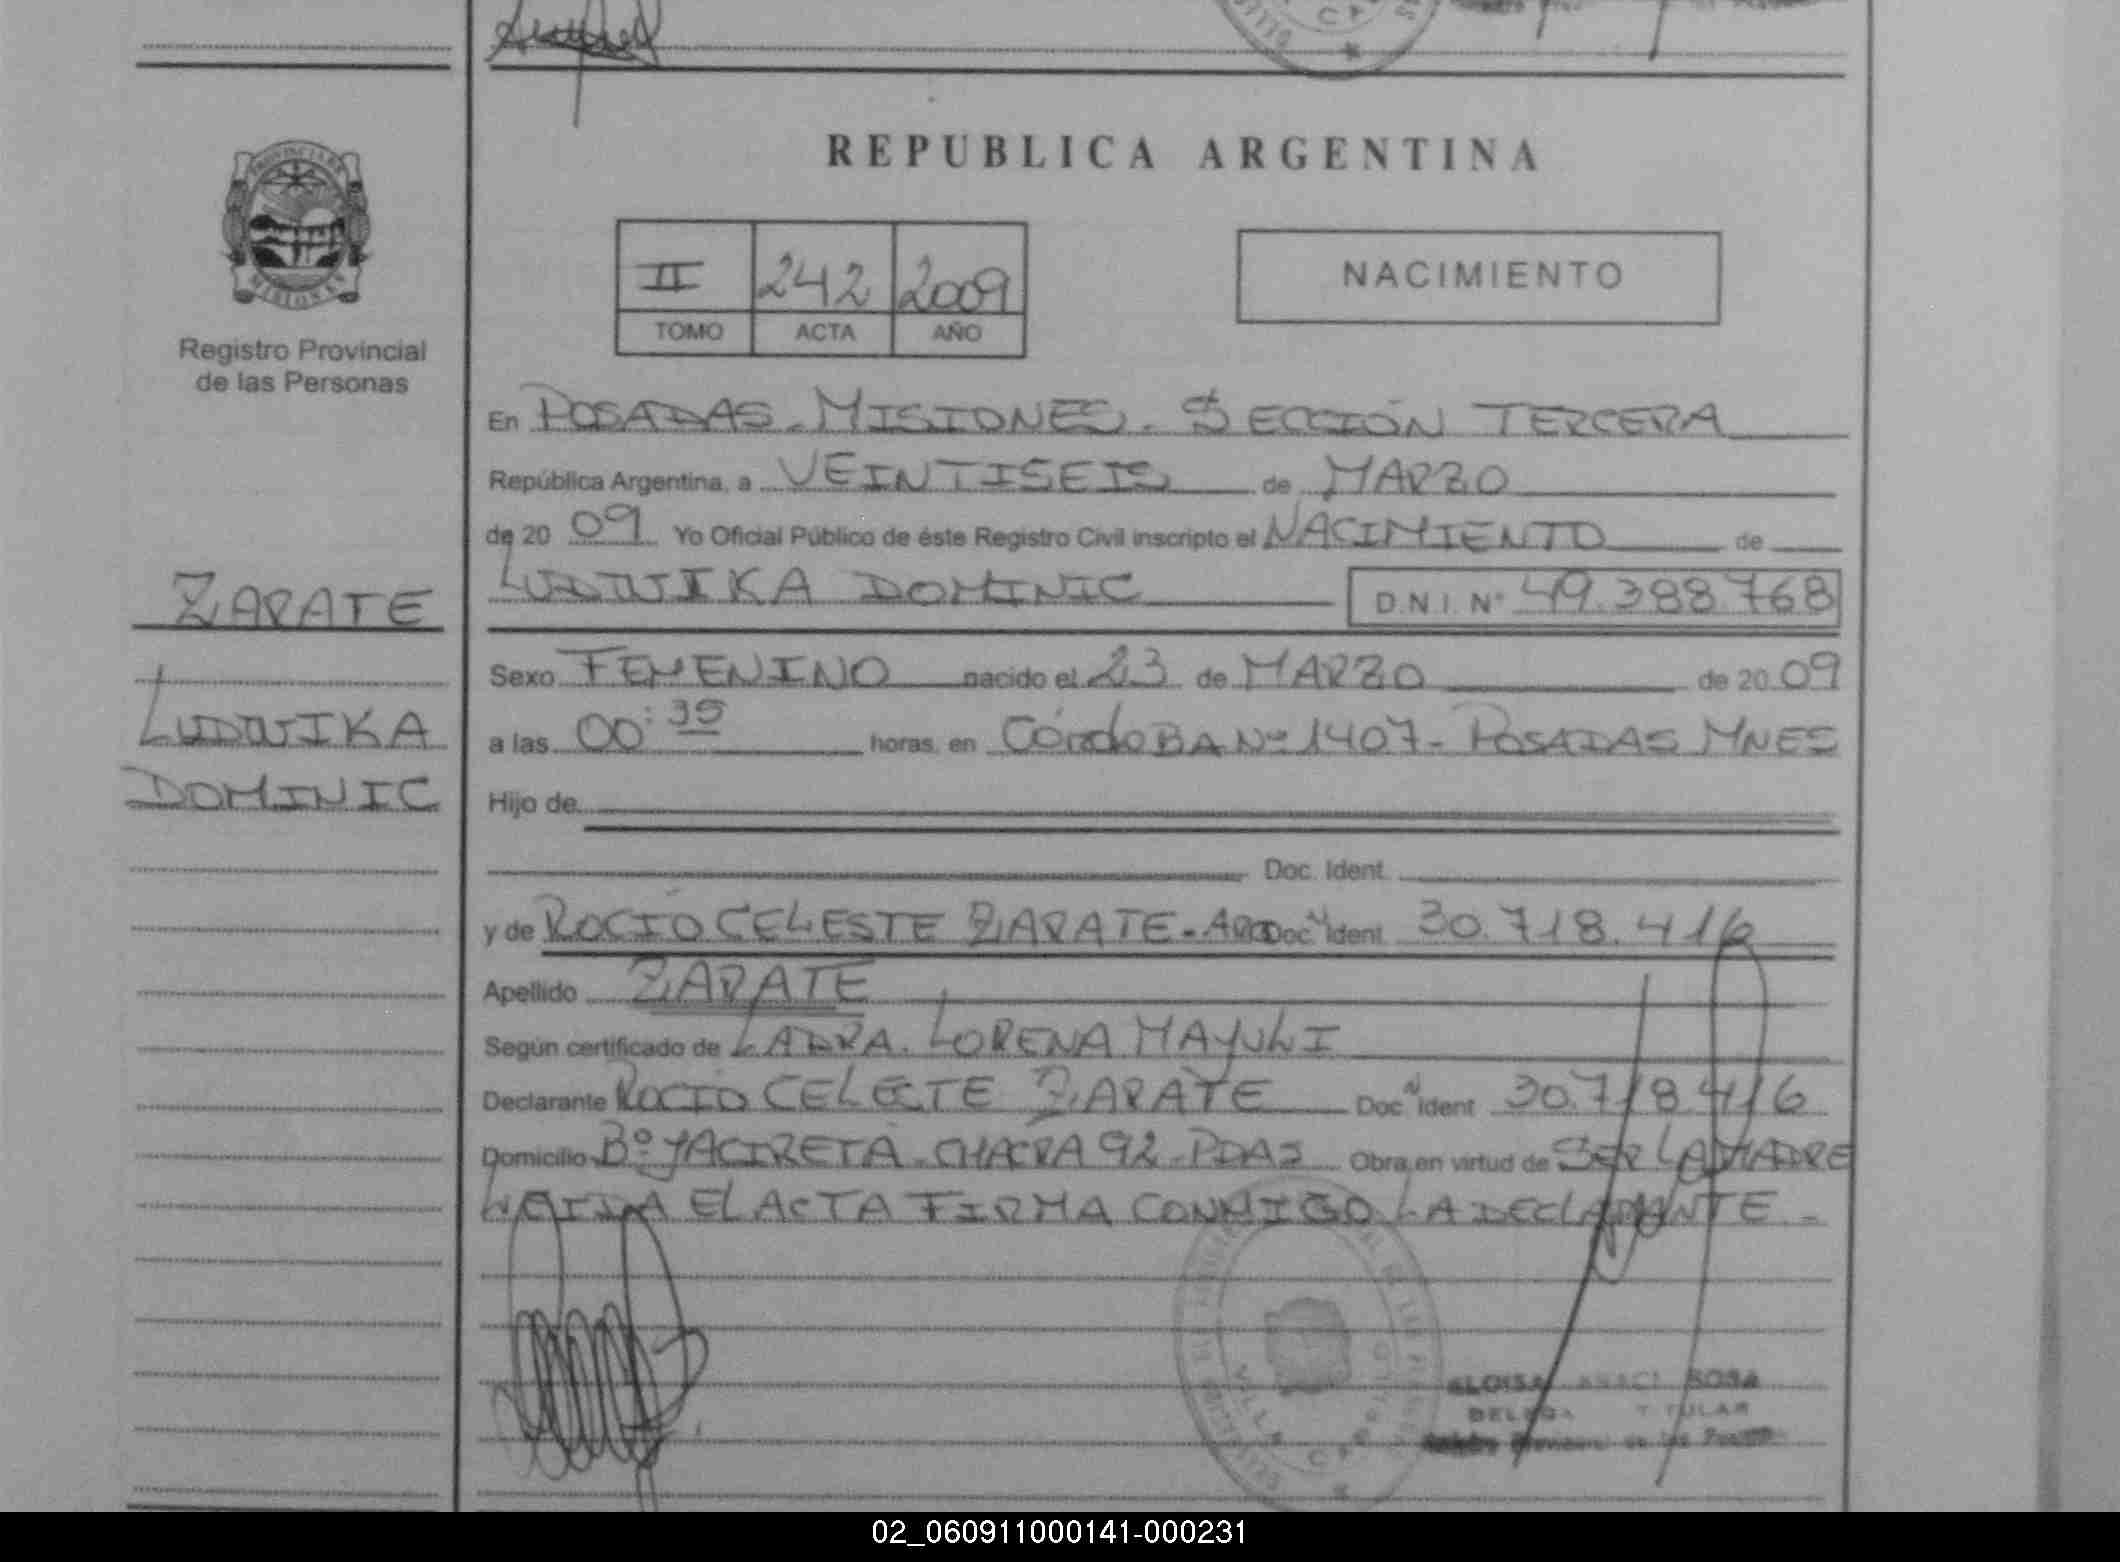 REPUBLICA ARGENTINA
PROVINCIA DE
MISIONES
Registro Provincial
de las Personas
II 242 2009
TOMO ACTA AÑO
NACIMIENTO
En POSADAS - MISIONES - SECCIÓN TERCERA
República Argentina, a VEINTISEIS de MARZO
de 20 09 Yo Oficial Público de éste Registro Civil inscripto el NACIMIENTO de
LUDWIKA DOMINIC D.N.I. Nº 49.388.768
ZARATE
LUDWIKA
DOMINIC
Sexo FEMENINO nacido el 23 de MARZO de 20 09
a las 00:35 horas, en CórdoBA Nº 1407 - POSADAS MNES
Hijo de
Doc. Ident.
y de ROCIO CELESTE ZARATE - Doc. Ident. 30.718.416
Apellido ZARATE
Según certificado de LA DRA. LORENA MAYULI
Declarante ROCIO CELESTE ZARATE Doc Ident 30.718.416
Domicilio Bº YACIRETA - CHACRA 92 - PDAS Obra en virtud de SER LA MADRE
LEIDA EL ACTA FIRMA CONMIGO LA DECLARANTE -
VILLA CABELLO
SOSA
TITULAR
02_060911000141-000231